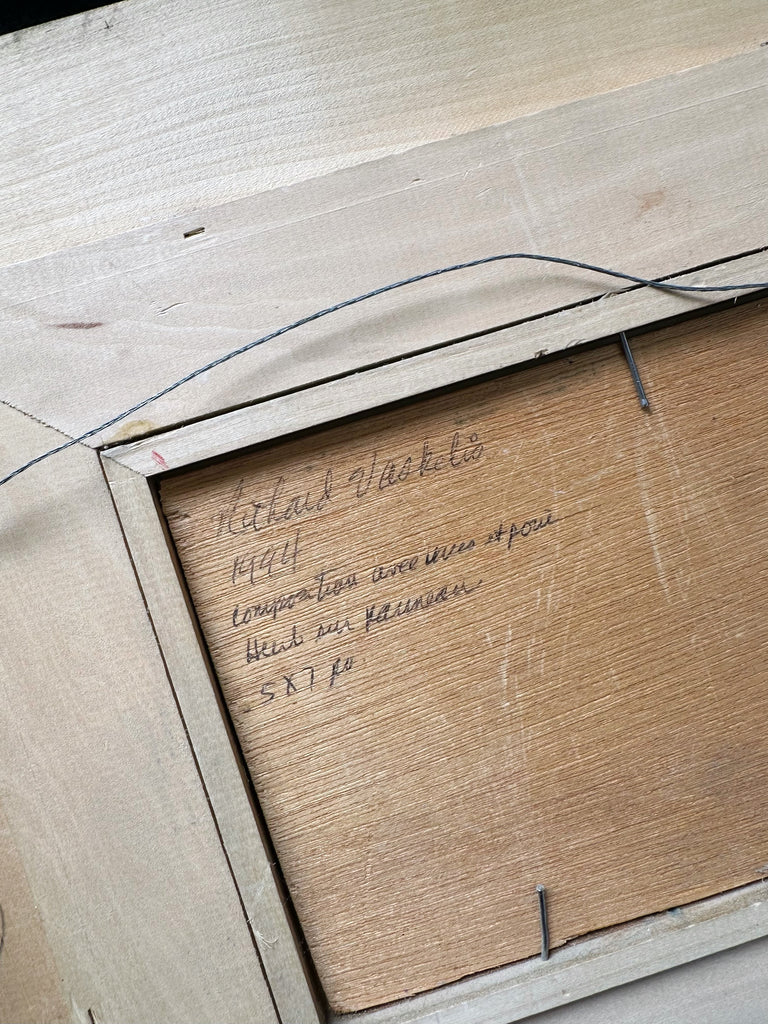 Richard Vaskelis
1994
composition avec uves et poire
Huile sur panneau
5 X 7 po